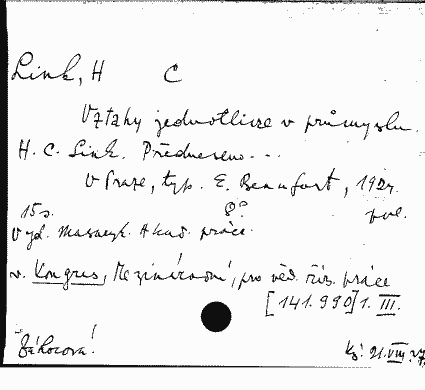 Link, H C
Vztahy jednotlivce v průmyslu.
H. C. Link. Předneseno...
V Praze, typ. E. Beaufort, 1924.
15 s. 8°
Vyd. Masaryk. Akad. práce.
v. Kongres, Mezinárodní, pro věd. říz. práce
[141.990] 1. III.
Záhorová!
21. VIII. 27.